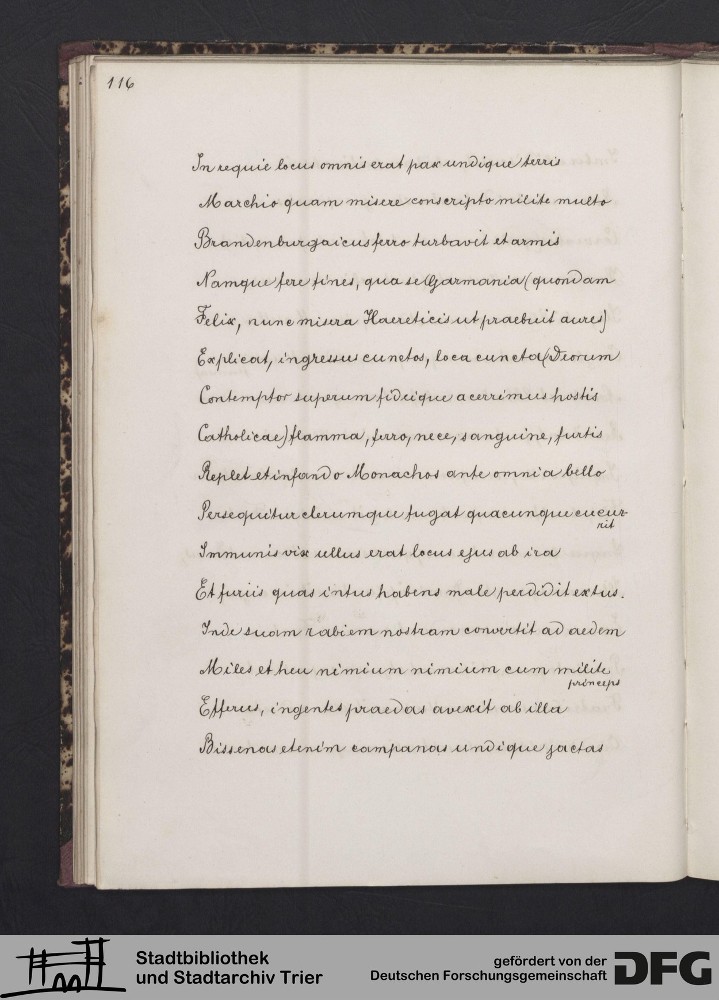 116
In requie locus omnis erat pax undique terris
Marchio quam misere conscripto milite multo
Brandenburgaicus ferro turbavit et armis
Namque fere fines, qua se Germania (quondam
Felix, nunc misera Haereticis ut praebuit aures)
Explicat, ingressus cunctos, loca cuncta (Deorum
Contemptor superum fideique acerrimus hostis
Catholicae) flamma, ferro, nece, sanguine, furtis
Replet et infando Monachos ante omnia bello
Persequitur clerumque fugat quacunque cucur-
rit
Immunis vix ullus erat locus ejus ab ira
Et furiis quas intus habens male perdidit extus.
Inde suam rabiem nostram convertit ad aedem
Miles et heu nimium nimium cum milite
princeps
Efferus, ingentes praedas avexit ab illa
Bissenas etenim campanas undique jactas
Stadtbibliothek
und Stadtarchiv Trier
gefördert von der
Deutschen Forschungsgemeinschaft
DFG